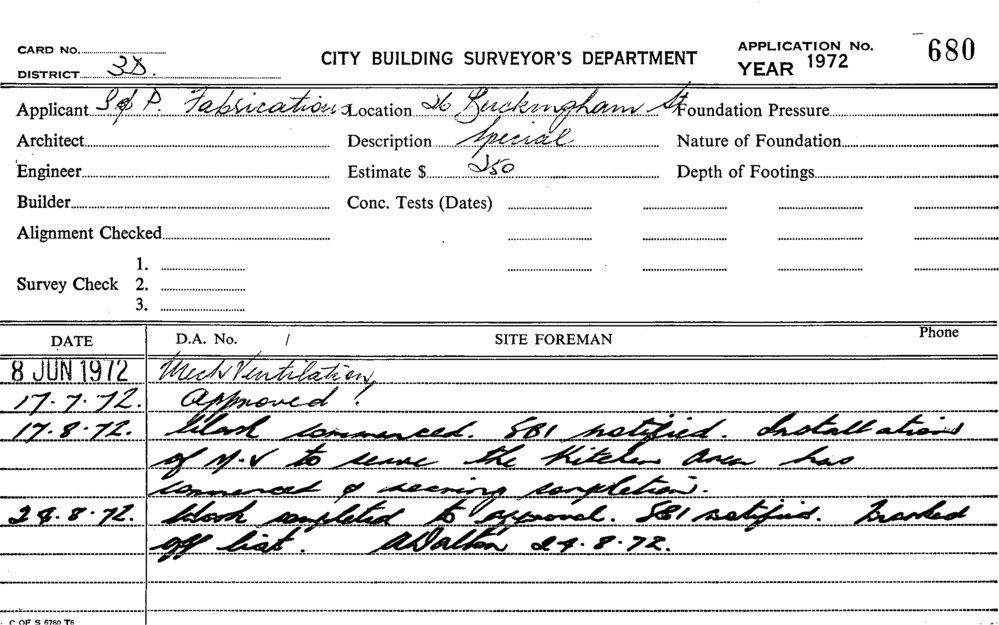 CARD No.
DISTRICT 3D.
CITY BUILDING SURVEYOR'S DEPARTMENT
APPLICATION No. 680
YEAR 1972
Applicant S & P. Fabrications Location 26 Buckingham St. Foundation Pressure
Architect Description Special Nature of Foundation
Engineer Estimate $ 250 Depth of Footings
Builder Conc. Tests (Dates)
Alignment Checked
Survey Check 1.
2.
3.
DATE D.A. No. / SITE FOREMAN Phone
8 JUN 1972 Mech Ventilation,
17.7.72. Approved!
17.8.72. Work commenced. SBI notified. Installation
of M.V to serve the Kitchen area has
commenced & nearing completion.
24.8.72. Work completed to approval. SBI notified. Marked
off list. ADalton 24.8.72.
C OF S 6760 T6